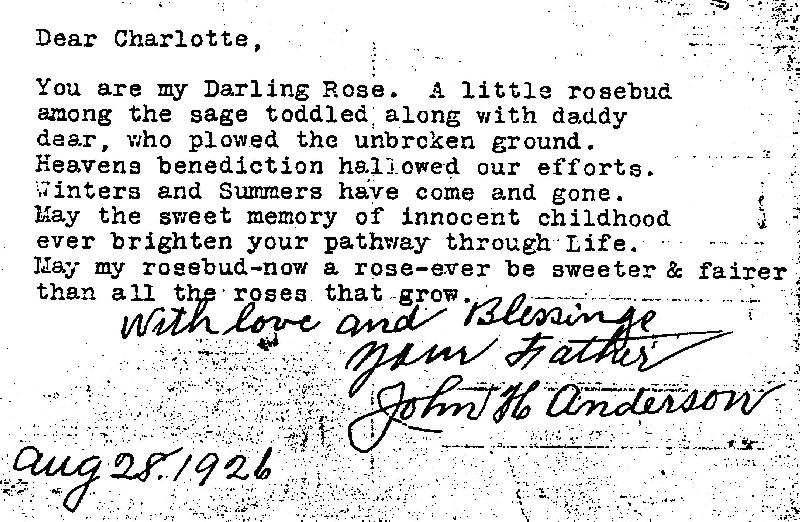 Dear Charlotte,
You are my Darling Rose. A little rosebud
among the sage toddled along with daddy
dear, who plowed the unbroken ground.
Heavens benediction hallowed our efforts.
Winters and Summers have come and gone.
May the sweet memory of innocent childhood
ever brighten your pathway through Life.
May my rosebud-now a rose-ever be sweeter & fairer
than all the roses that grow.
With love and Blessings
Your Father
John H Anderson
Aug 28. 1926